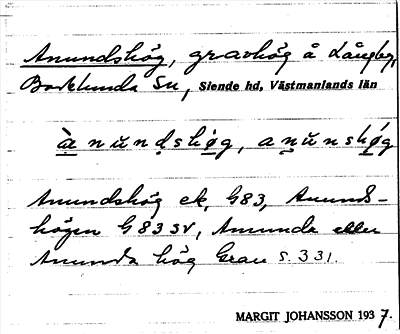 Anundshög, gravhög å Långby,
Badelunda sn, Siende hd, Västmanlands län
à nŭndshøg, anŭnshǿg
Anundshög ek, G83, Anunds-
högen G83 sv, Anunda eller
Anunda hög Grau s. 331.
MARGIT JOHANSSON 1937.